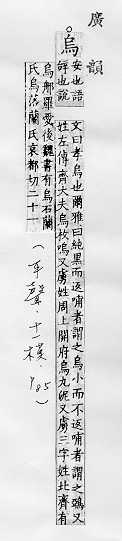 廣韻
烏
安也語
辝也說
文曰孝烏也爾雅曰純黑而返哺者謂之烏小而不返哺者謂之鵶又
姓左傳齊大夫烏枝鳴又虜姓周上開府烏丸泥又虜三字姓北齊有
烏那羅愛後魏書有烏石蘭
氏烏落蘭氏哀都切二十一
(平聲·十一模·p.85)